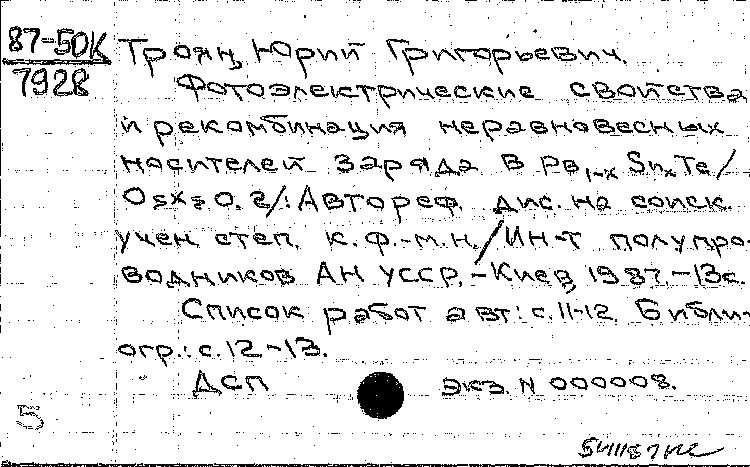 87-50К
7928
Троян, Юрий Григорьевич.
Фотоэлектрические свойства
и рекомбинация неравновесных
носителей заряда в Pb1-x SnxTe /
0≤x≤0.2/: Автореф. дис. на соиск.
учен. степ. к.ф.-м.н. / Ин-т полупро-
водников АН УССР. - Киев, 1987. - 13 с.
Список работ авт.: с. 11-12. Библи-
огр.: с. 12-13.
ДСП экз. N 000008.
5